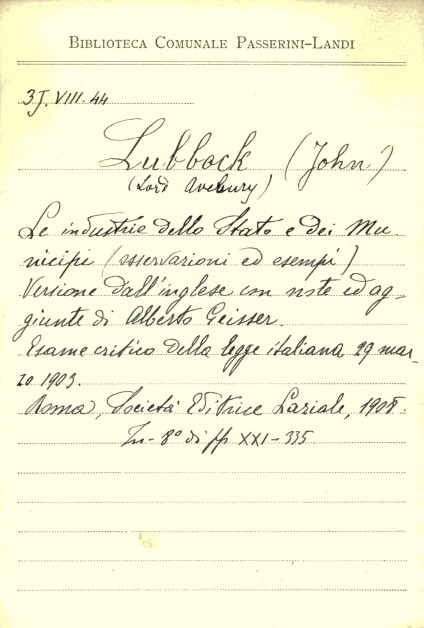 BIBLIOTECA COMUNALE PASSERINI-LANDI
3J.VIII.44
Lubbock (John)
(Lord Avebury)
Le industrie dello Stato e dei Mu-
nicipi (osservazioni ed esempi)
Versione dall'inglese con note ed ag-
giunte di Alberto Geisser.
Esame critico della legge italiana 29 mar-
zo 1903.
Roma, Società Editrice Laziale,
In-8° di pp XXI-335.